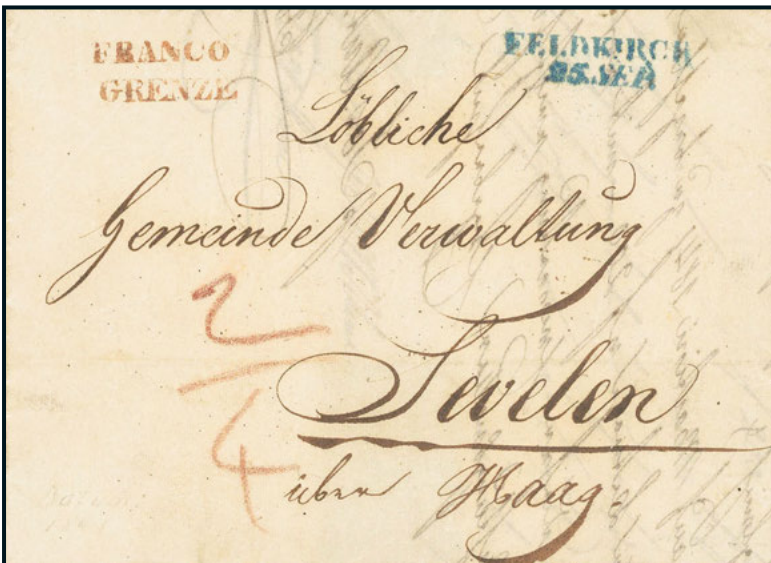 FRANCO
GRENZE
FELDKIRCH
25.
Löbliche
Gemeinde Verwaltung
2
4
Sevelen
über Haag.